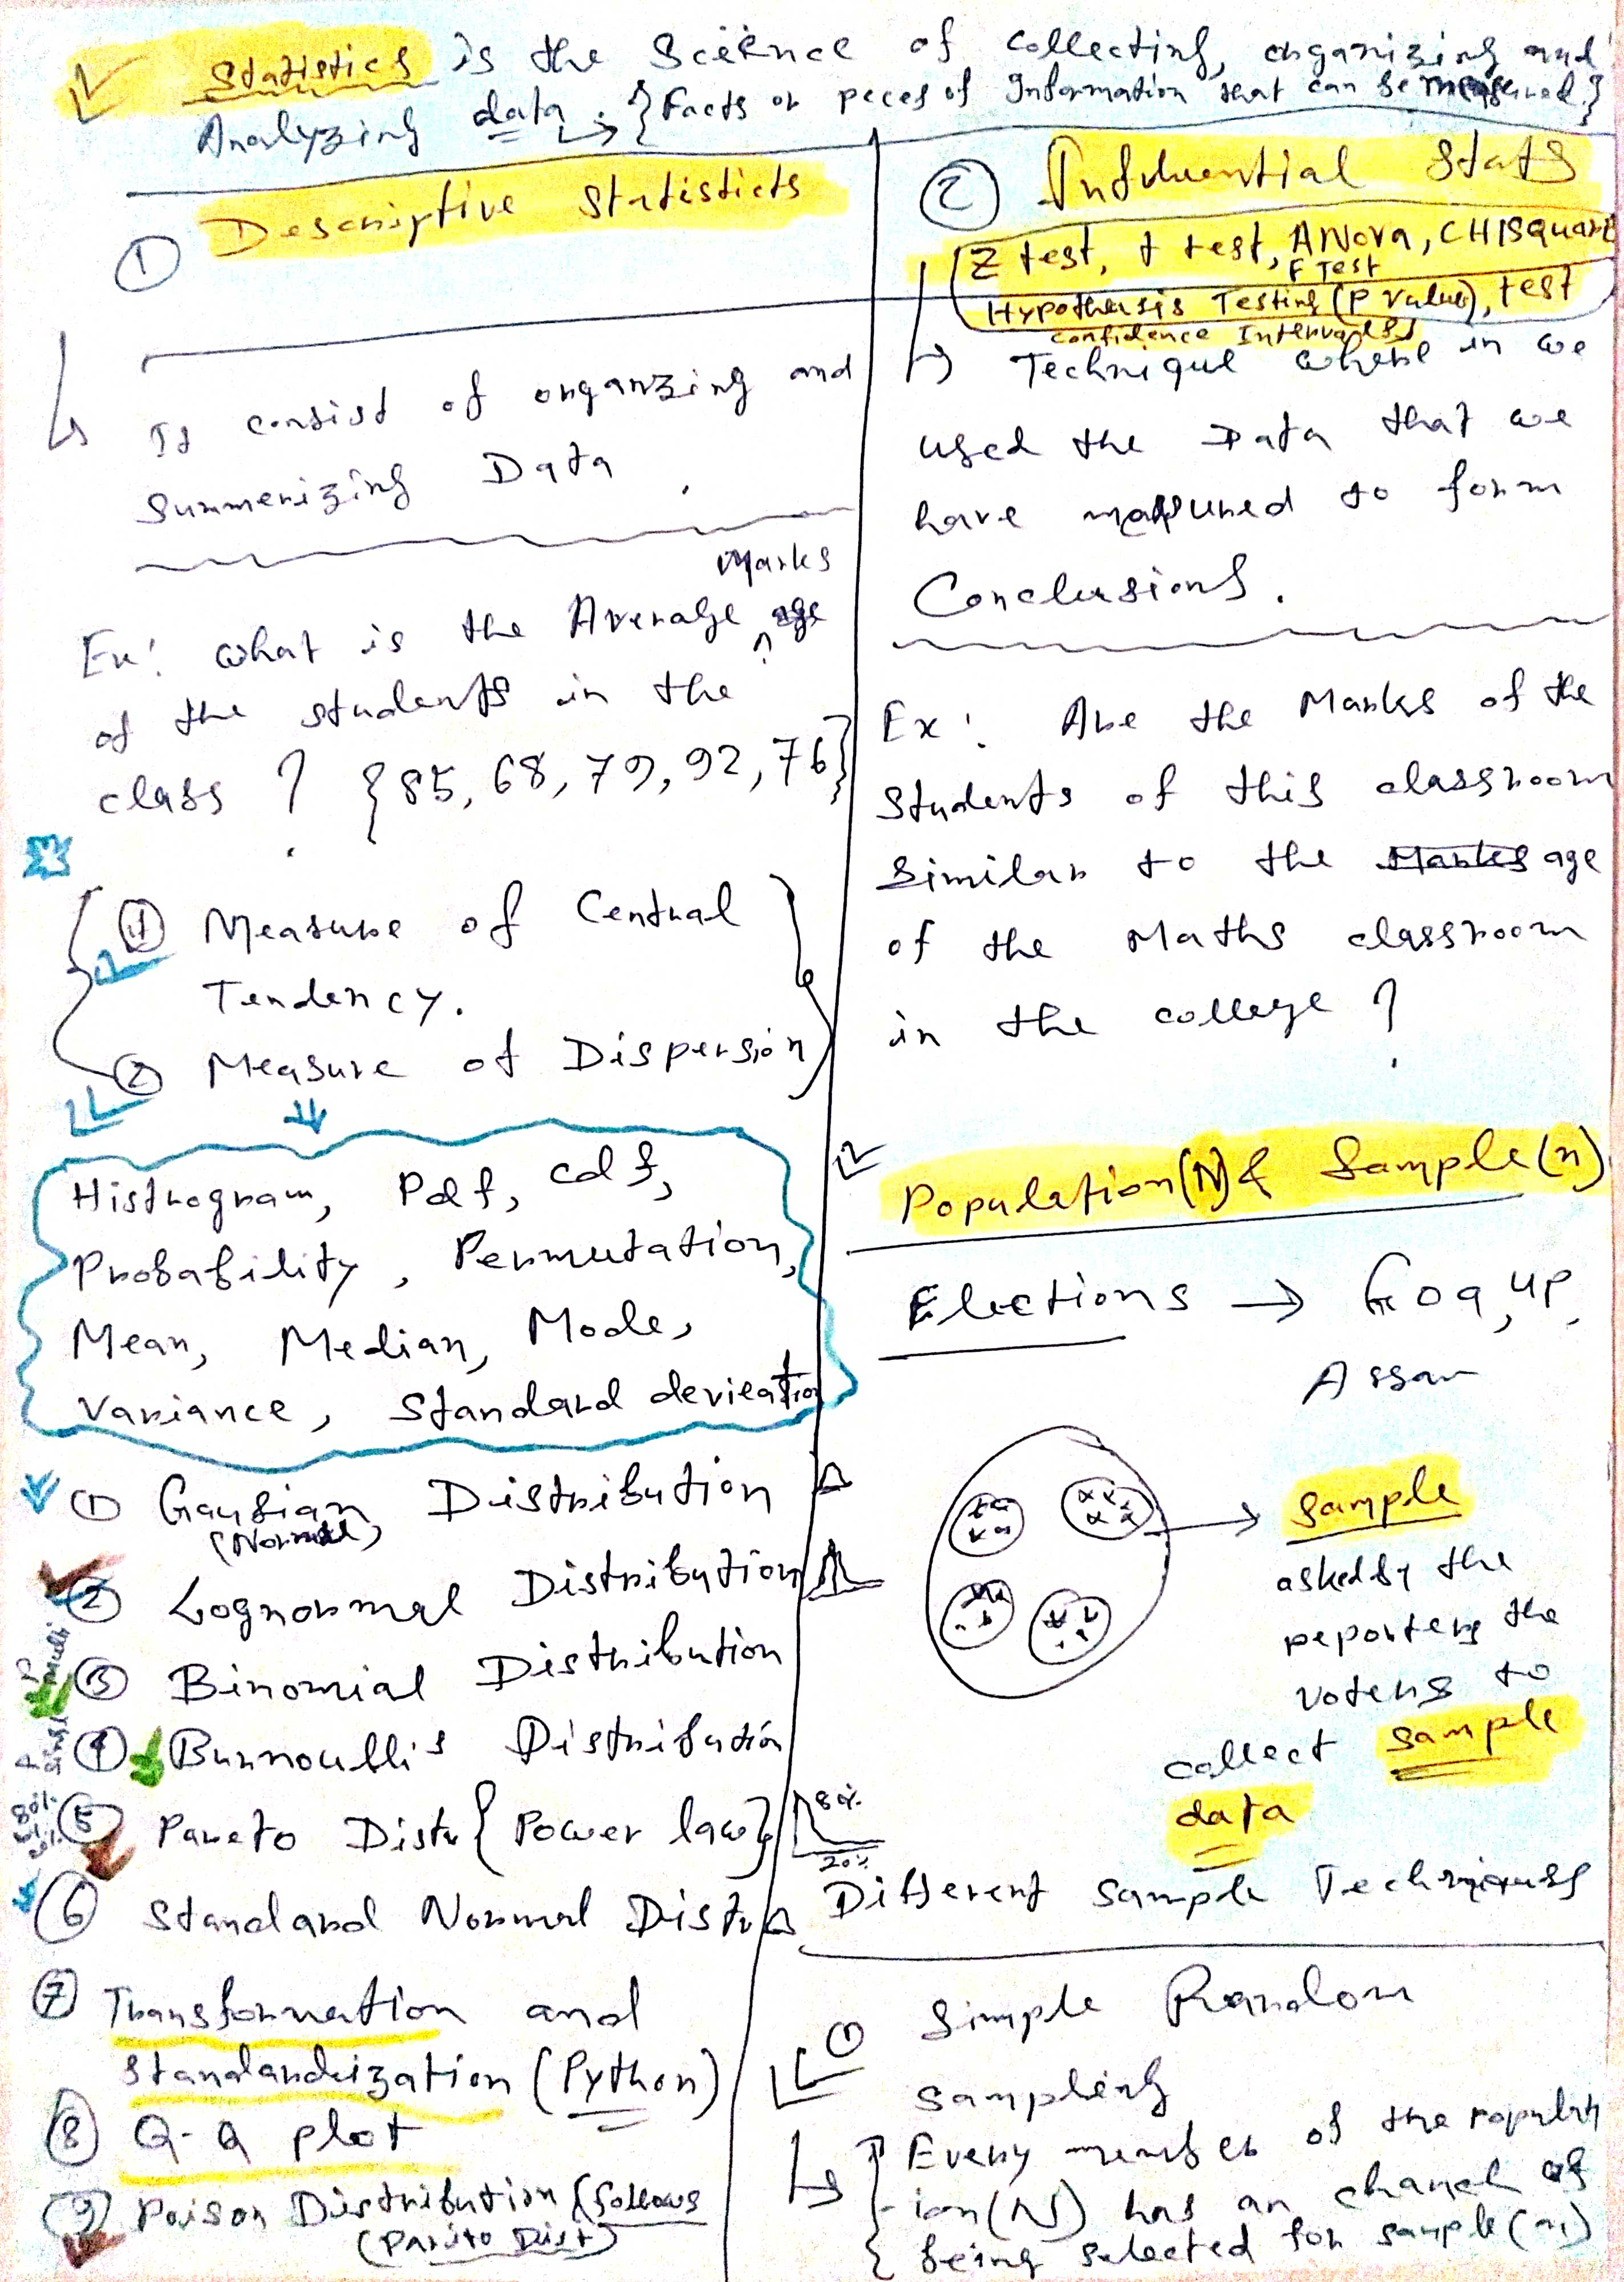 Statistics is the Science of collecting, organizing and
Analyzing data. → {Facts or peces of Information that can be measured.}
① Descriptive Statisticts
It consist of organzing and
Summerizing Data.
Marks
Ex: what is the Average age
of the students in the
class? {85, 68, 79, 92, 76}
① Measure of Central
Tendency.
② Measure of Dispersion
Histrogram, Pdf, cdf,
Probability, Permutation,
Mean, Median, Mode,
Variance, Standard devieation
① Gausian Distribution
(Normal)
② Lognormal Distribution
③ Binomial Distribution
④ Burnoulli's Distribution
⑤ Pareto Distr {Power law}
80%
20%
⑥ Standard Normal Distr
⑦ Transformation and
Standardization (Python)
⑧ Q-Q plot
⑨ Poison Distribution (follows
(Parito Dist)
② Influential Stats
Z test, t test, ANOVA, CHISquare
F Test
Hypothesis Testing (P value), test
Confidence Intervals
→ Technique where in we
used the Data that we
have measured to form
Conclusions.
Ex: Are the Marks of the
Students of this classroom
Similar to the Marks age
of the Maths classroom
in the college?
Population(N) & Sample(n)
Elections → Goa, UP,
Assam
Sample
asked by the
reporters the
voters to
collect sample
data
Different Sample Techniques
① Simple Random
Sampling
→ { Every member of the populat
ion(N) has an chance of
being selected for sample(n)